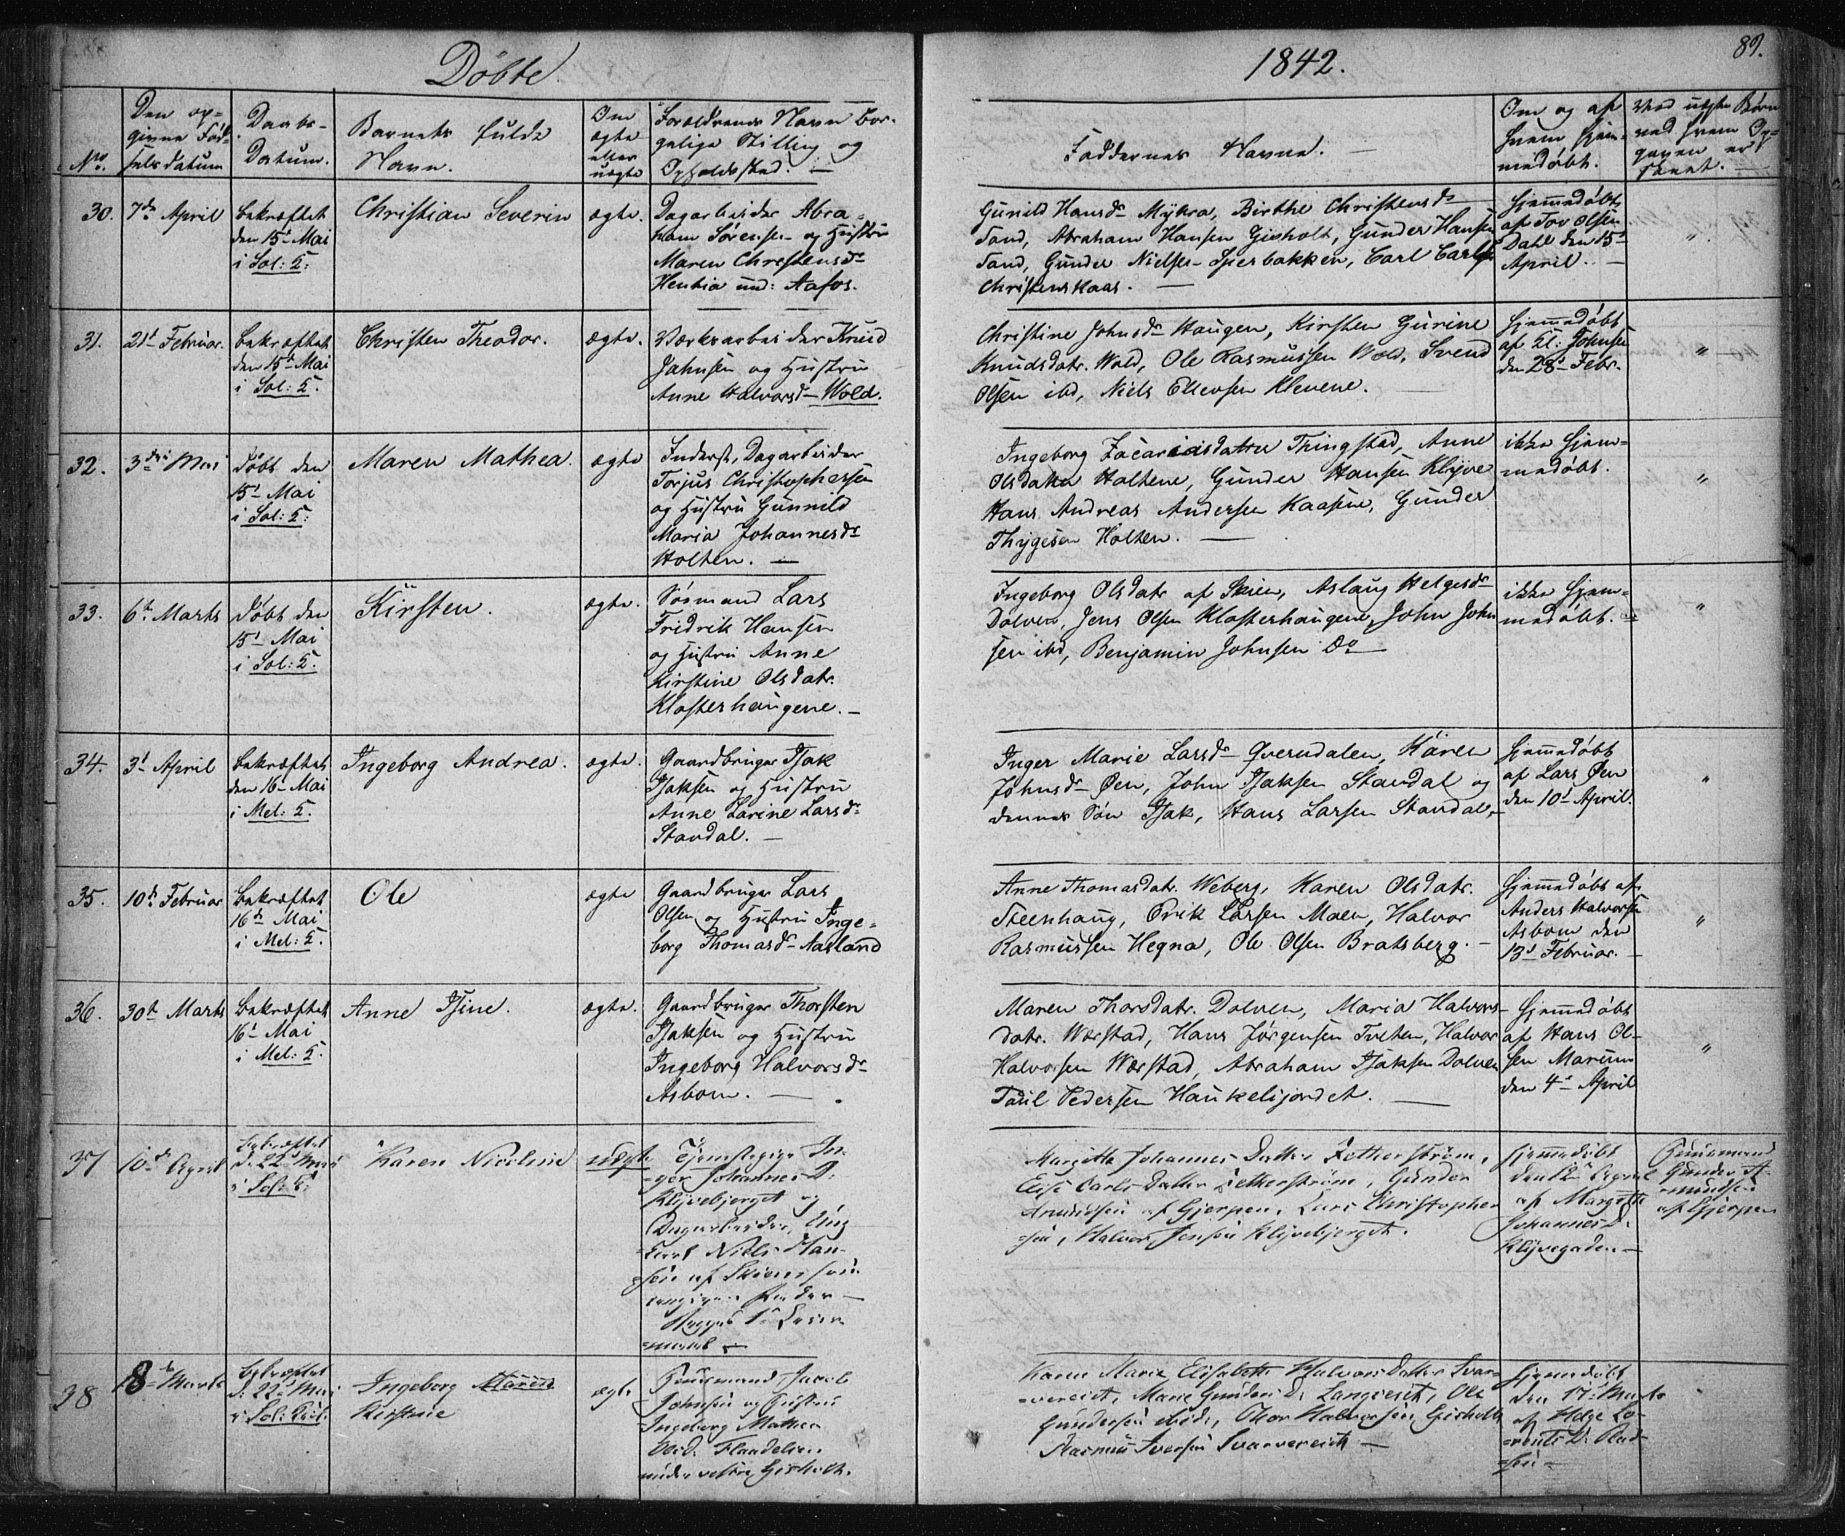 Døbte.
1842.
89.
No.
Den op-
givne Fød-
selsdatum
Daabs-
Datum.
Barnets fulde
Navn.
Om
ægte
eller
uægte
Forældrenes Navn bor-
gelige Stilling og
Opholdssted.
Faddernes Navne.
Om og af
hvem hjem-
medøbt.
Ved uægte Børn
ved hvem Op-
gaven er
skeet.
30.
7de April
bekræftet
den 15de Mai
i Sol: K.
Christian Severin
ægte.
Dagarbeider Abra-
ham Sørensen og Hustru
Maren Christensdr
Hentia und: Aafos.
Gunild Hansdr Mykra, Birthe Christensdr
Sand, Abraham Hansen Gisholt, Gunder Hansen
Sand, Gunder Nielsen Bakken, Carl Carlsen
Christenskaas.
Hjemmedøbt
af Tov Olsen
Dahl den 15d
April.
"
31.
21d Februar.
bekræftet
den 15d Mai
i Sol: K.
Christen Theodor.
ægte.
Værksarbeider Knud
Johnsen og Hustru
Anne Halvorsdr Wold.
Christine Johnsdr Haugen, Kirsten Gurine
Knudsdatr. Wold, Ole Rasmussen Wold, Svend
Olsen ibd, Niels Ellevsen Klevene.
Hjemmedøbt
af El: Johnsen
den 28d Febr.
"
32.
3die Mai
døbt den
15d Mai
i Sol: K.
Maren Mathea.
ægte
Inderst, Dagarbeider
Torjus Christophersen
og Hustru Gunnild
Maria Johannesdr
Holten.
Ingeborg Zacariasdatter Thingstad, Anne
Olsdatter Holtene, Gunder Hansen Klyve
Hans Andreas Andersen Kaasene, Gunder
Thygesen Holten.
ikke Hjem-
medøbt.
"
33.
6te Marts
døbt den
15d Mai
i Sol: K.
Kirsten.
ægte.
Søemand Lars
Fridrik Hansen
og Hustru Anne
Kirstine Olsdatr.
Klosterhaugene.
Ingeborg Olsdatr af Skien, Aslaug Helgesdr
Dolven, Jens Olsen Klosterhaugene, John John
sen ibd, Benjamin Johnsen Do
ikke Hjem-
medøbt.
"
34.
3d April
bekræftet
den 16d Mai
i Mel: K.
Ingeborg Andrea.
ægte.
Gaardbruger Isak
Isaksen og Hustru
Anne Larine Larsdr
Standal.
Inger Marie Larsdr Qverndalen, Karen
Johnsdr Øen, John Isaksen Standal og
dennes Søn Isak, Hans Larsen Standal.
Hjemmedøbt
af Lars Øen
den 10d April.
"
35.
10de Februar
bekræftet
16de Mai
i Mel: K.
Ole
ægte
Gaardbruger Lars
Olsen og Hustru Inge-
borg Thomasdr Aasland
Anne Thomasdatr. Weberg, Karen Olsdatr.
Steenhaug, Erik Larsen Moen, Halvor
Rasmussen Hegna, Ole Olsen Bratsberg.
Hjemmedøbt af
Anders Halvorsen
Asbom den
13d Februar.
"
36.
30te Marts
bekræftet
16d Mai
i Mel: K.
Anne Isine.
ægte.
Gaardbruger Thorsten
Isaksen og Hustru
Ingeborg Halvorsdr
Asbom.
Maren Thorsdatr. Dolven, Maria Halvors-
datr. Wærstad, Hans Jørgensen Tveten, Halvor
Halvorsen Wærstad, Abraham Isaksen Dolven
Poul Pedersen Haukelisjordet.
Hjemmedøbt
af Hans Ol-
sen Marum
den 4de April
"
37
10de April
bekræftet
d. 22d Mai
i Sol: K.
Karen Nicoline
uægte
Tjenestepige In-
ger Johannes D.
Klyvebjerget og
Dagarbeider, Ung
karl Niels Han-
sen af Skien som
angiven Fader
Margithe Johannes Datter Fetherstrøm,
Elise Carls Datter Fetherstrøm, Gunder
Amundsen af Gjerpen, Lars Christopher
sen, Halvor Jensen Klyvebjerget.
Hjemmedøbt
af Margithe
Johannes D.
Klyvegaden
Huusmand
Gunder A-
mundsen
af Gjerpen
38
8de Marts
bekræftet
d. 22d Mai
i Sol: Kirk.
Ingeborg Maren
Kirstine
ægte
Huusmand Jacob
Johnsen og Hustru
Ingeborg Mathea
Flaadelien
under vestre Gisholt.
Karen Marie Elisabeth Halvors Datter Svar-
vereidt, Marie Gunders D. Langereidt, Ole
Gundersen ibid., Halvorsen Gisholt
Rasmus Iversen Svarvereidt
Hjemmedøbt
den 17d Marts
af Helge Lo-
rents D.